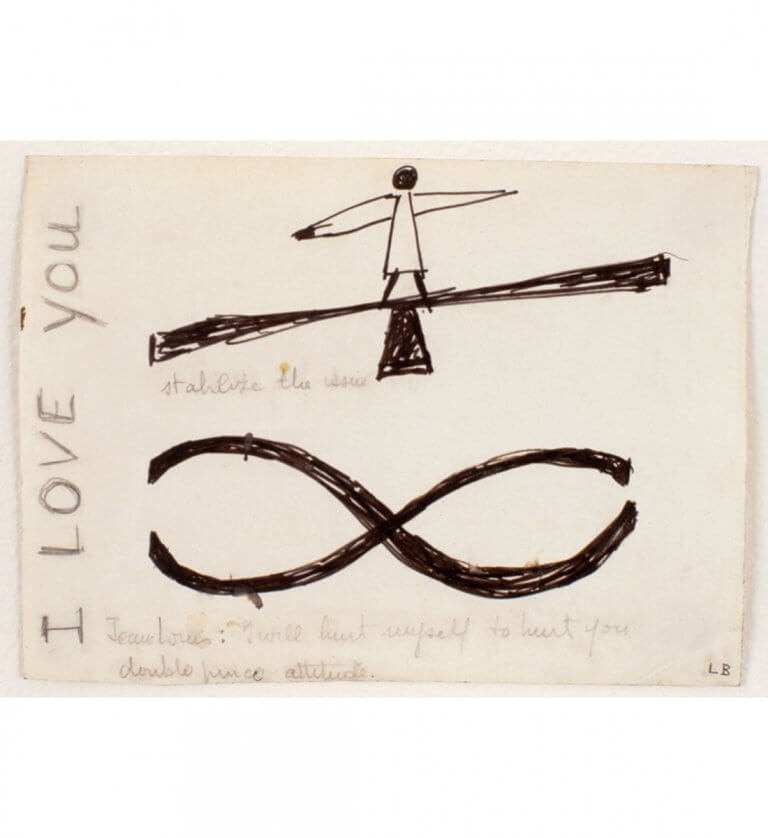 I LOVE YOU
stabilize the issue
Jean Louis: "I will hurt myself to hurt you
double pince attitude.
LB